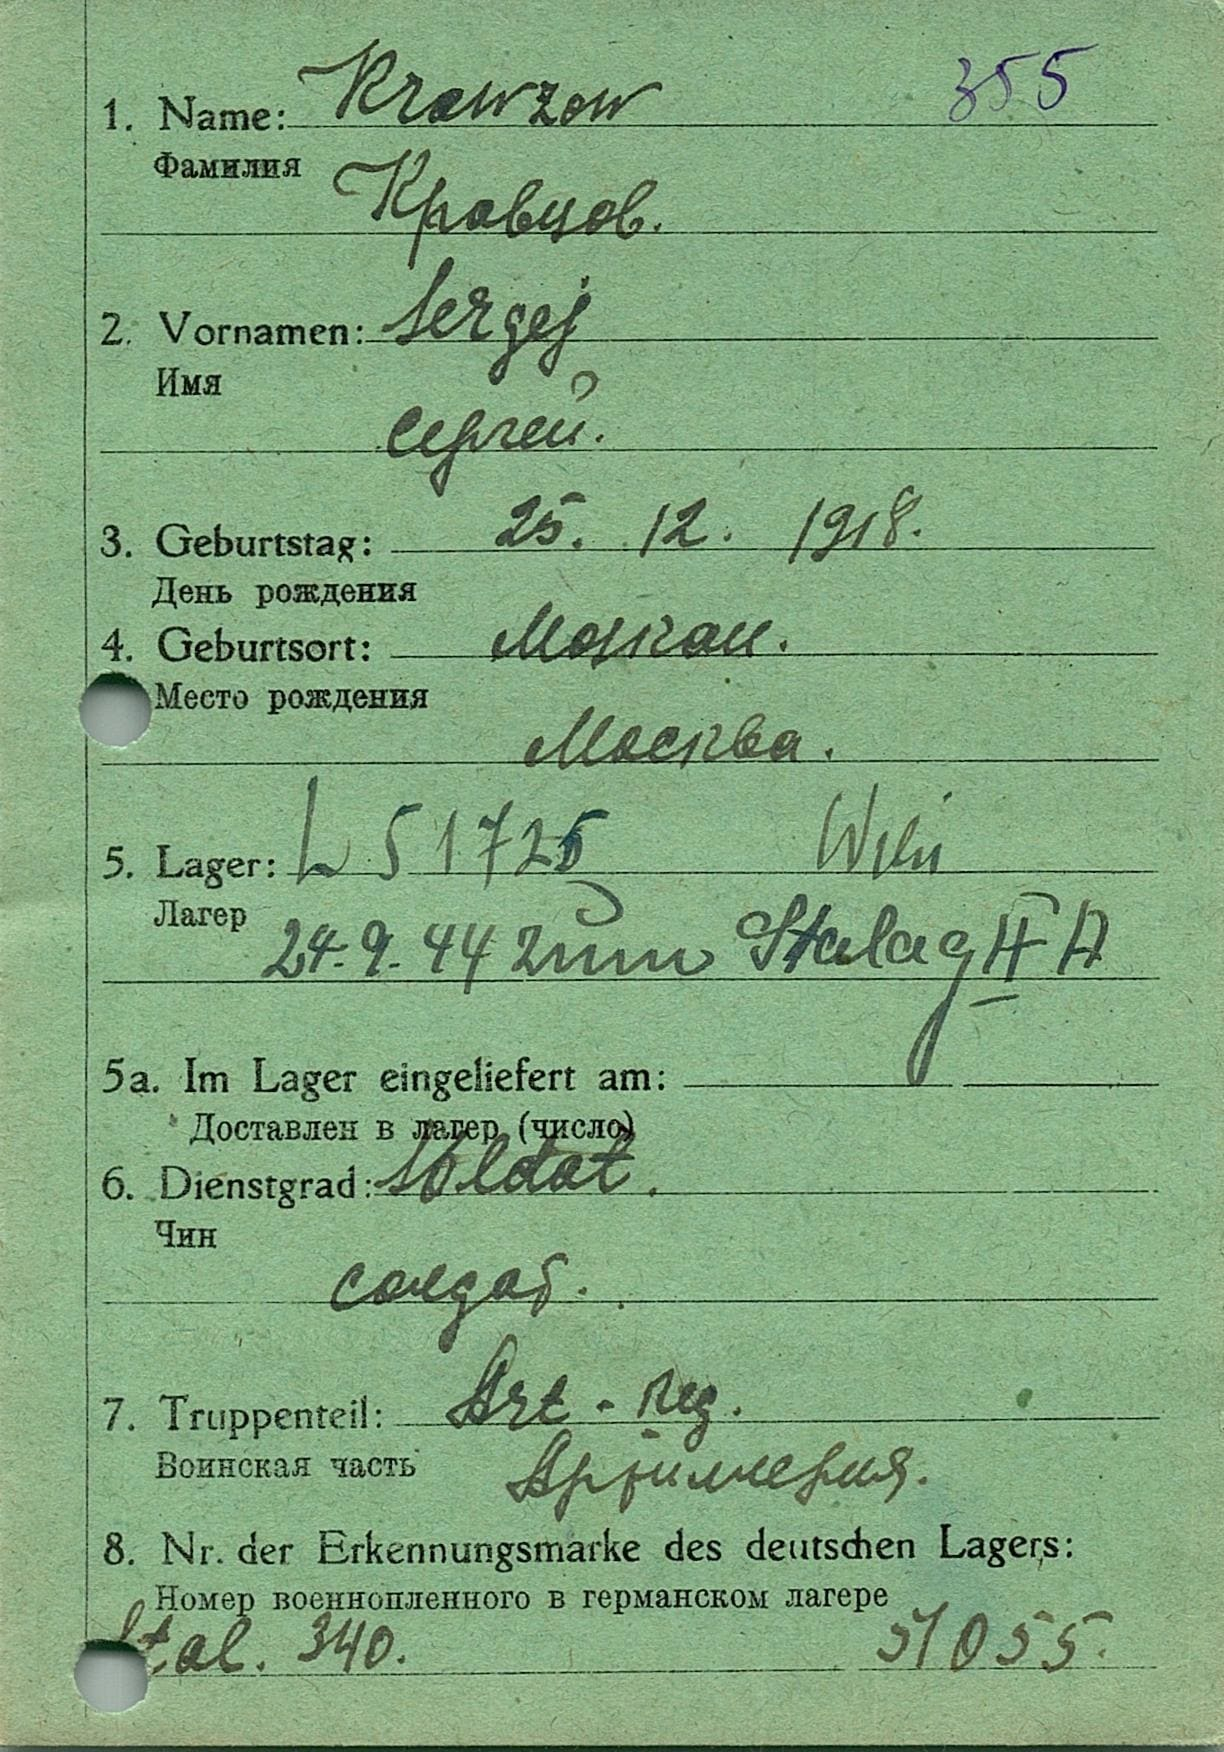 355
1. Name: Krawzow
Фамилия
Кравцов.
2. Vornamen: Sergej
Имя
Сергей.
3. Geburtstag: 25. 12. 1918.
День рождения
4. Geburtsort: Moskau.
Место рождения
Москва.
5. Lager: L 51725
Лагер
24.9.44 zum Stalag II A
5a. Im Lager eingeliefert am:
Доставлен в лагер (число)
6. Dienstgrad: Soldat.
Чин
солдат.
7. Truppenteil: Art - Reg.
Воинская часть
Артиллерия.
8. Nr. der Erkennungsmarke des deutschen Lagers:
Номер военнопленного в германском лагере
Stal. 340. 51055.